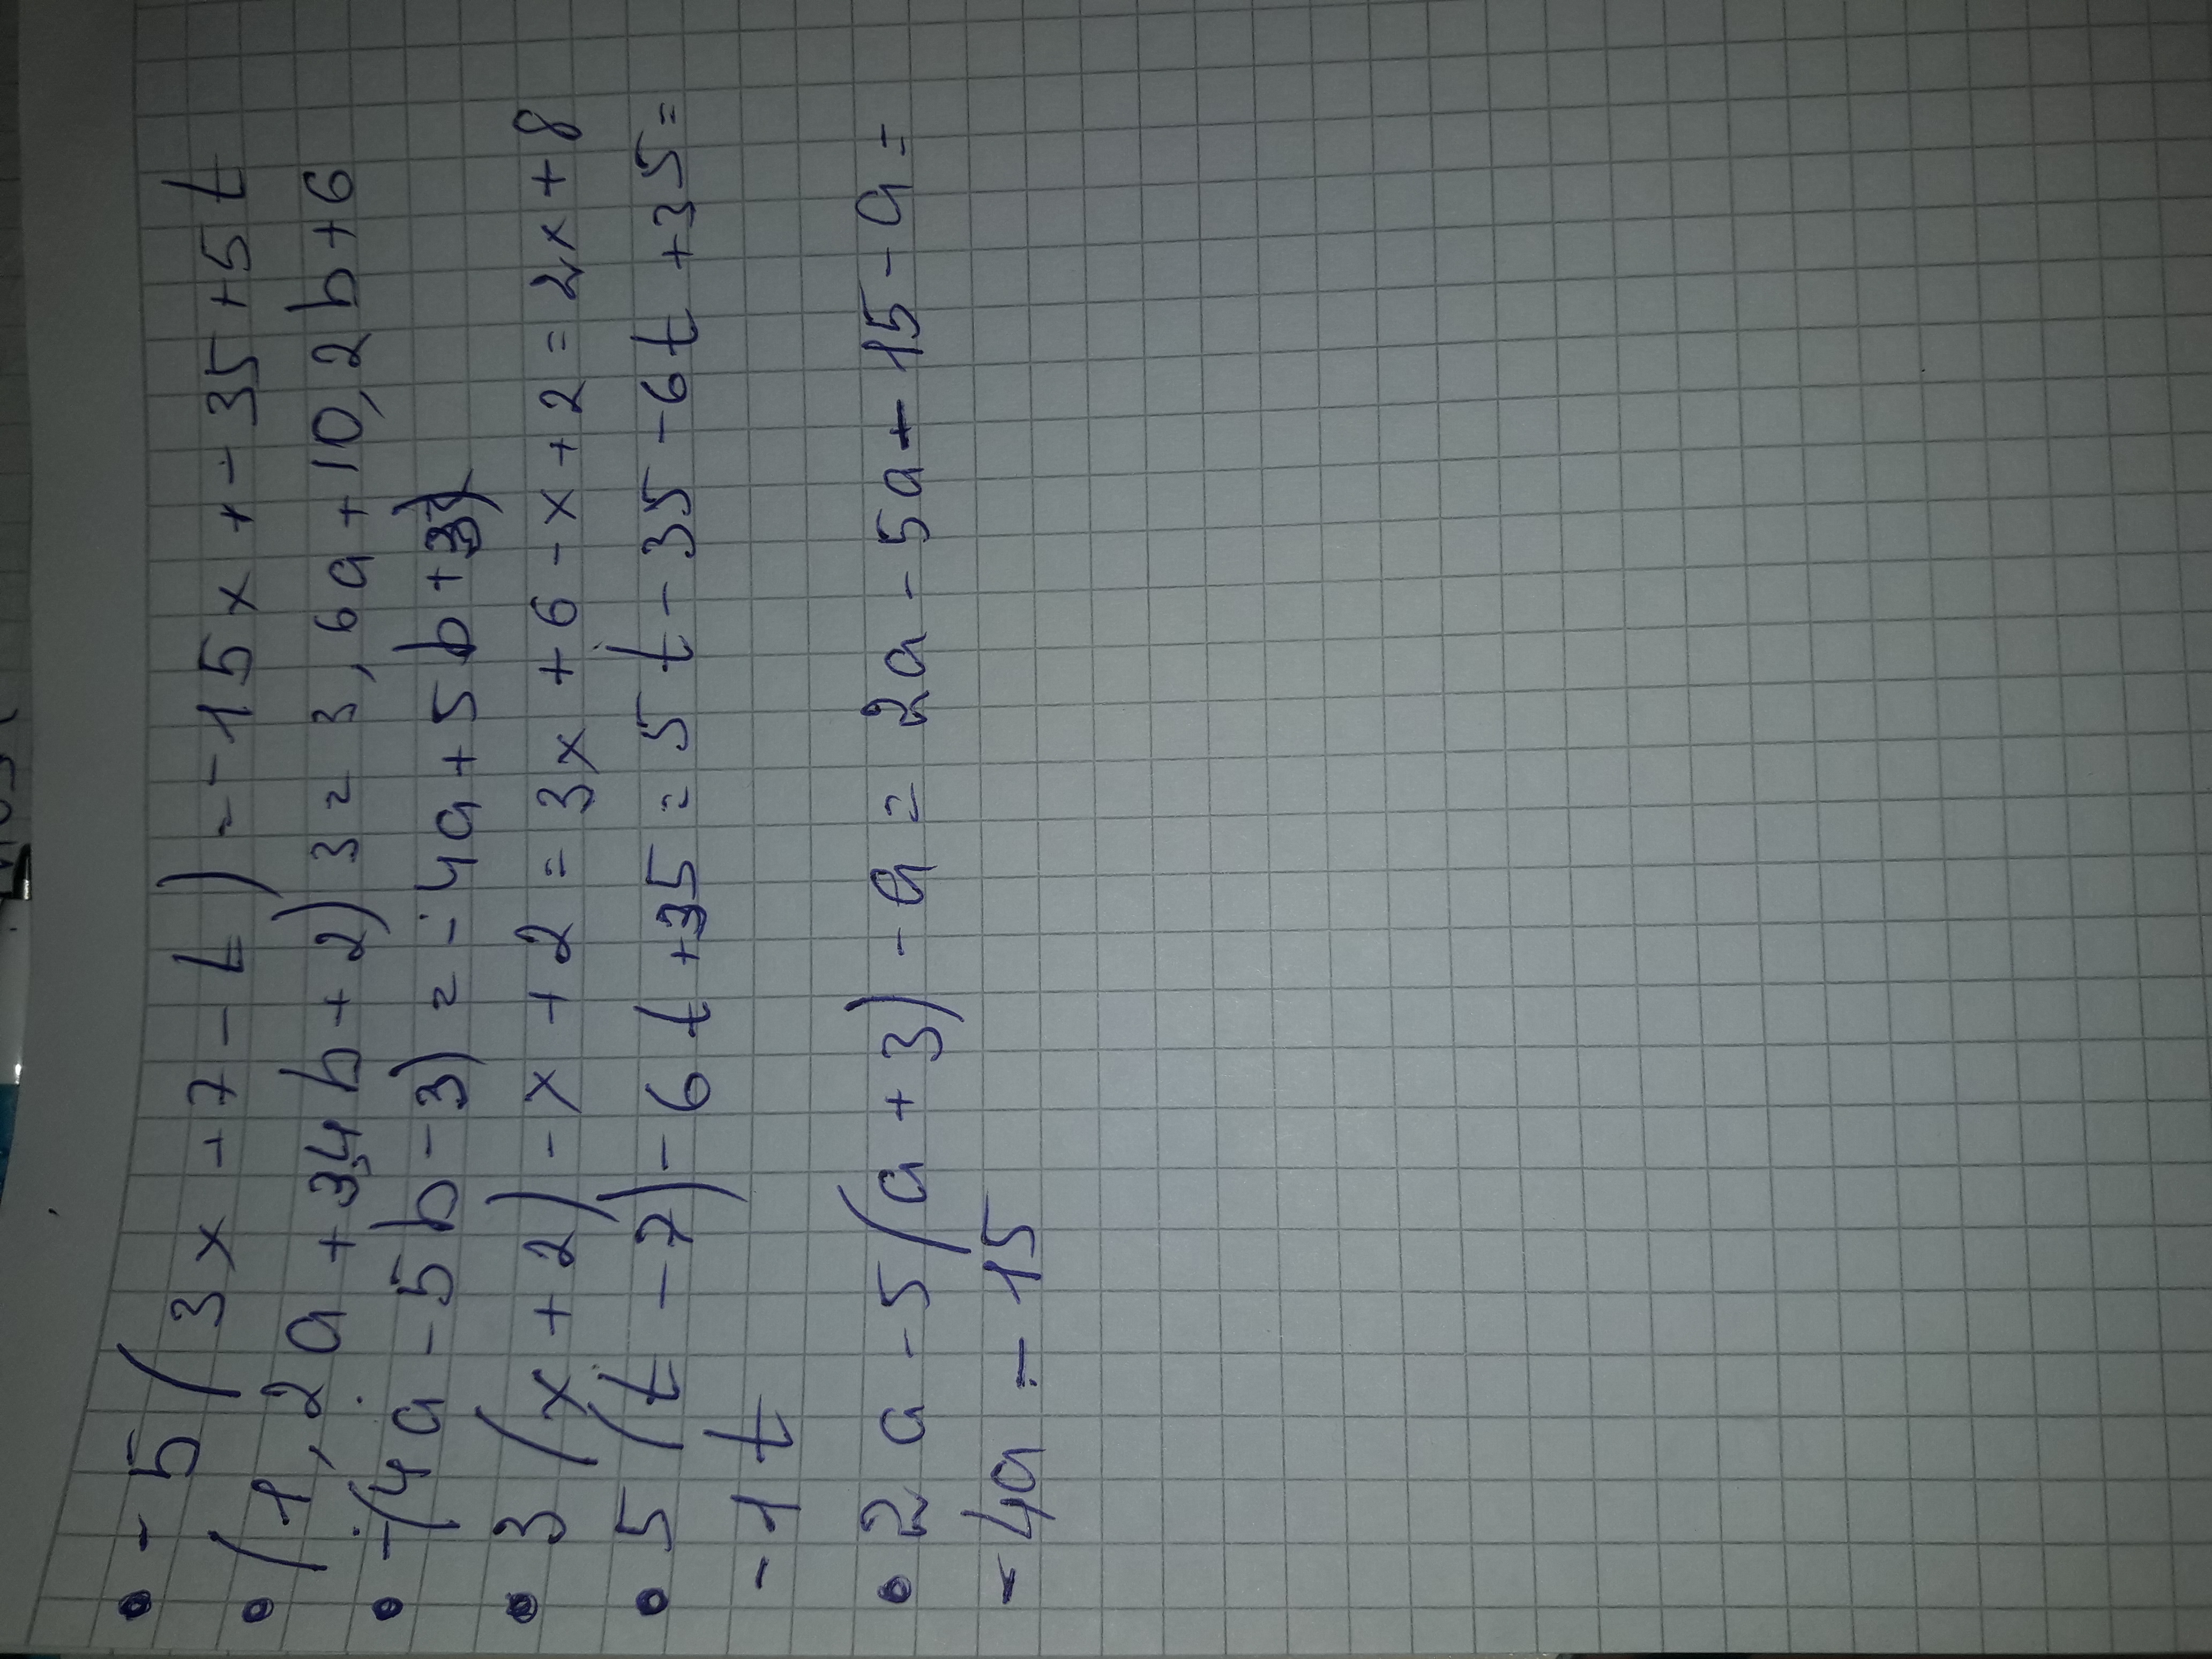 • -5(3x+7-t)=-15x+-35+5t
• (1,2a+3,4b+2)3=3,6a+10,2b+6
• -(4a-5b-3)=-4a+5b+3
• 3(x+2)-x+2=3x+6-x+2=2x+8
• 5(t-7)-6t+35=5t-35-6t+35=
-1t
• 2a-5(a+3)-a=2a-5a-15-a=
-4a-15